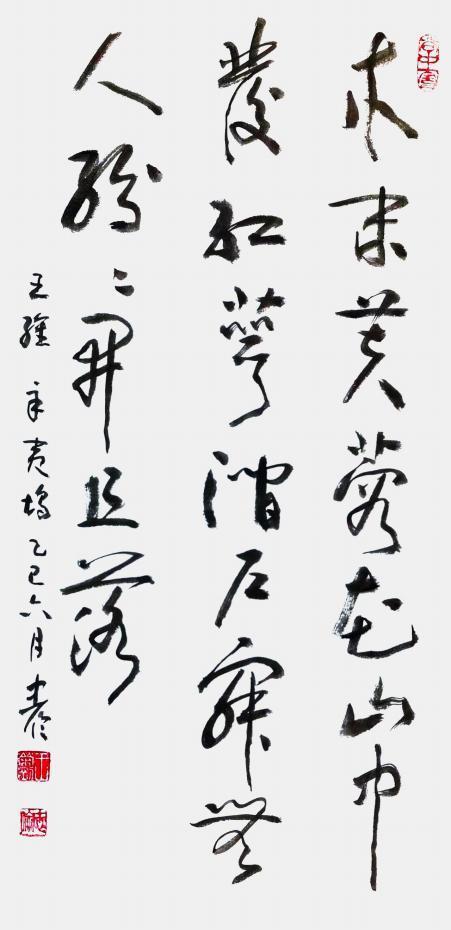 木末芙蓉花山中
發紅萼澗户寂無
人紛〻開且落
王維 辛夷塢 乙巳六月